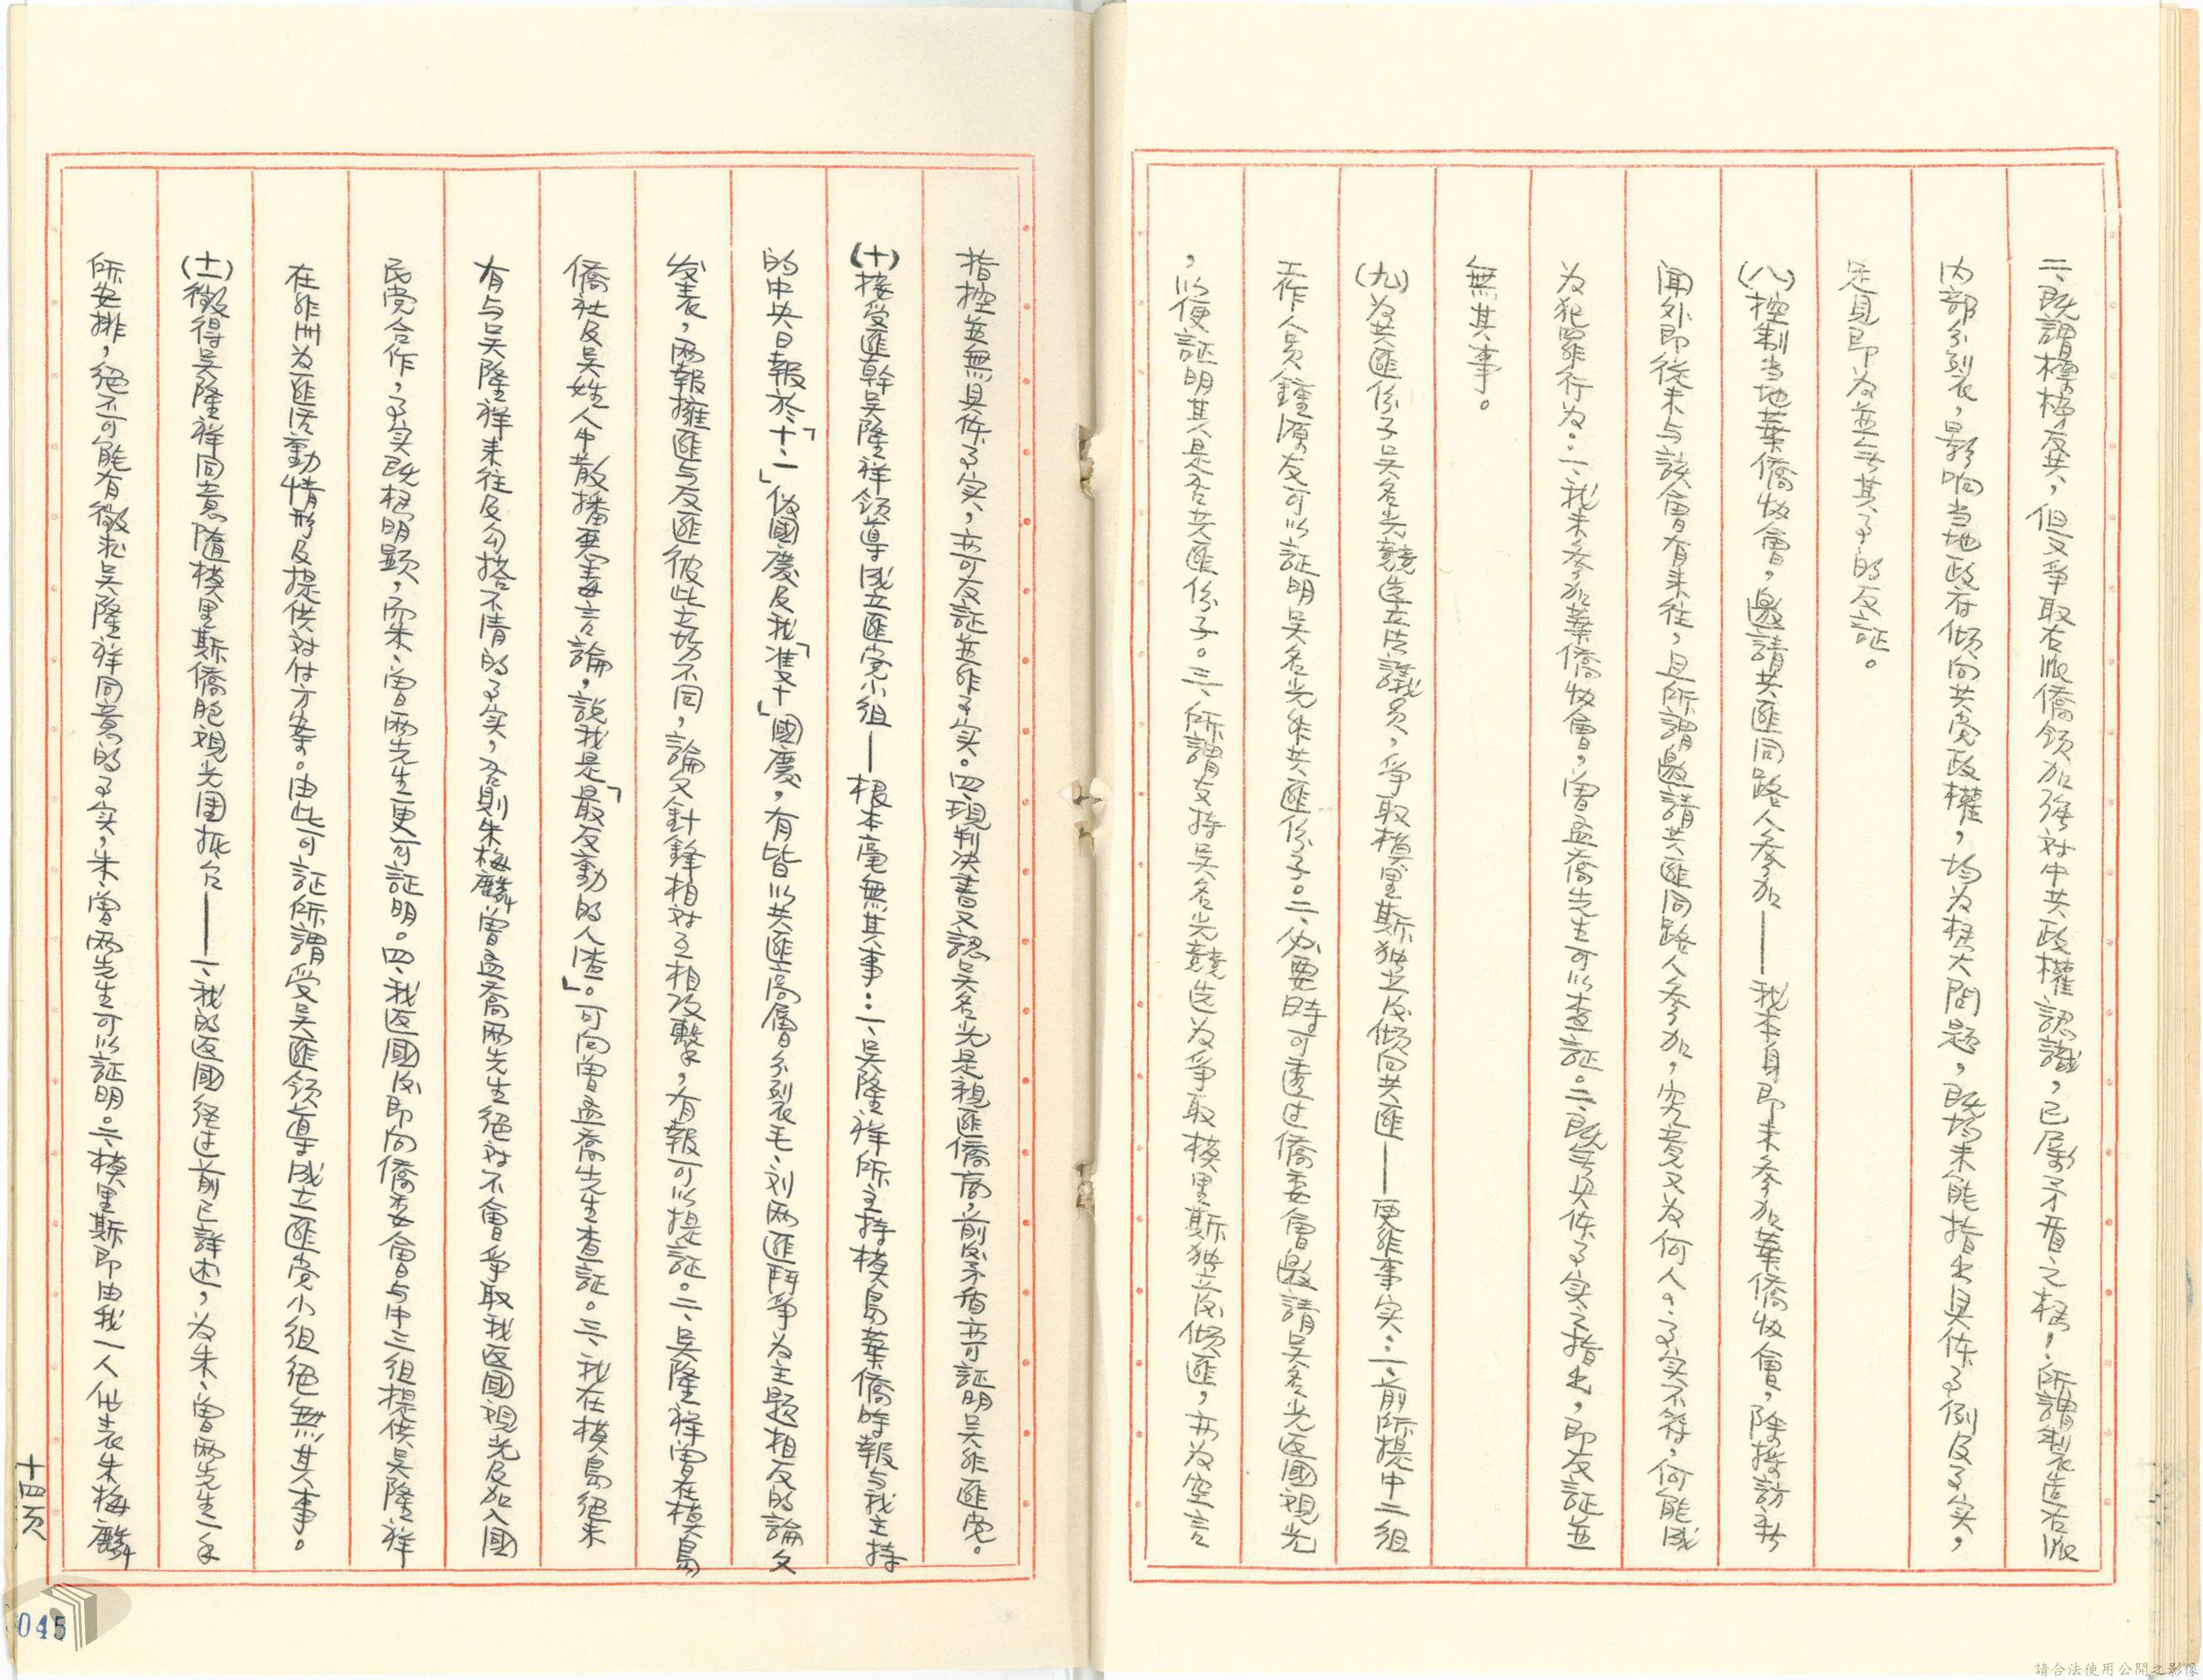 二、既謂標榜反共，但又爭取右派僑領加強对中共政權認識，已屬矛盾之極！所謂製造右派
内部分列衣，影响当地政府傾向共党政權，均为極大問題，既均未能指出具体了例及了实，
足見即为並无其了的反証。
(八)控制当地華僑牧會，邀請共匪同路人参加——我本身即未参加華僑牧會，除接訪新
闻外即從未与該會有来往，且所謂邀請共匪同路人参加，究竟又为何人？了实不符，何能成
为犯罪行为：一、我未参加華僑牧會，曾孟喬先生可以查証。二、既无具体了实之指出，即反証並
無其事。
(九)为共匪份子吴名光競选立法議員，爭取模里斯独立及傾向共匪——更非事实：一、前所提中二組
工作人員鍾源友可以証明吴名光非共匪份子。二、必要時可透过僑委會邀請吴名光返國観光
，以便証明其是否共匪份子。三、所謂支持吴名光競选为爭取模里斯独立及傾匪，亦为空言
指控並無具体了实，亦可反証並非了实。四、現判决書又認吴名光是親匪僑商，前後矛盾亦可証明吴非匪党。
(十)接受匪幹吴隆祥領導成立匪党小組——根本毫無其事：一、吴隆祥所主持模島華僑時報与我主持
的中央日報於「十、一」偽國慶及我「雙十」國慶，有皆以共匪高層分列衣毛、刘两匪鬥爭为主題相反的論文
发表，两報擁匪与反匪彼此立場不同，論文針鋒相对互相攻擊，有報可以提証。二、吴隆祥曾在模島
僑社及吴姓人中散播惡毒言論，說我是「最反動的人渣」。可向曾孟喬先生查証。三、我在模島絕未
有与吴隆祥来往及勾搭不清的了实，否則朱梅麟曾孟喬两先生絕对不會爭取我返國観光及加入國
民党合作，了实既極明顯，而朱、曾两先生更可証明。四、我返國後即向僑委會与中三組提供吴隆祥
在非洲为匪活動情形及提供对付方案。由此可証所謂受吴匪領導成立匪党小組絕無其事。
(十一)徵得吴隆祥同意隨模里斯僑胞観光團抵台——一、我的返國经过前已詳述，为朱、曾两先生一手
所安排，絕不可能有徵求吴隆祥同意的了实，朱、曾两先生可以証明。二、模里斯即由我一人代表朱梅麟
十四頁
045
請合法使用公開之影像